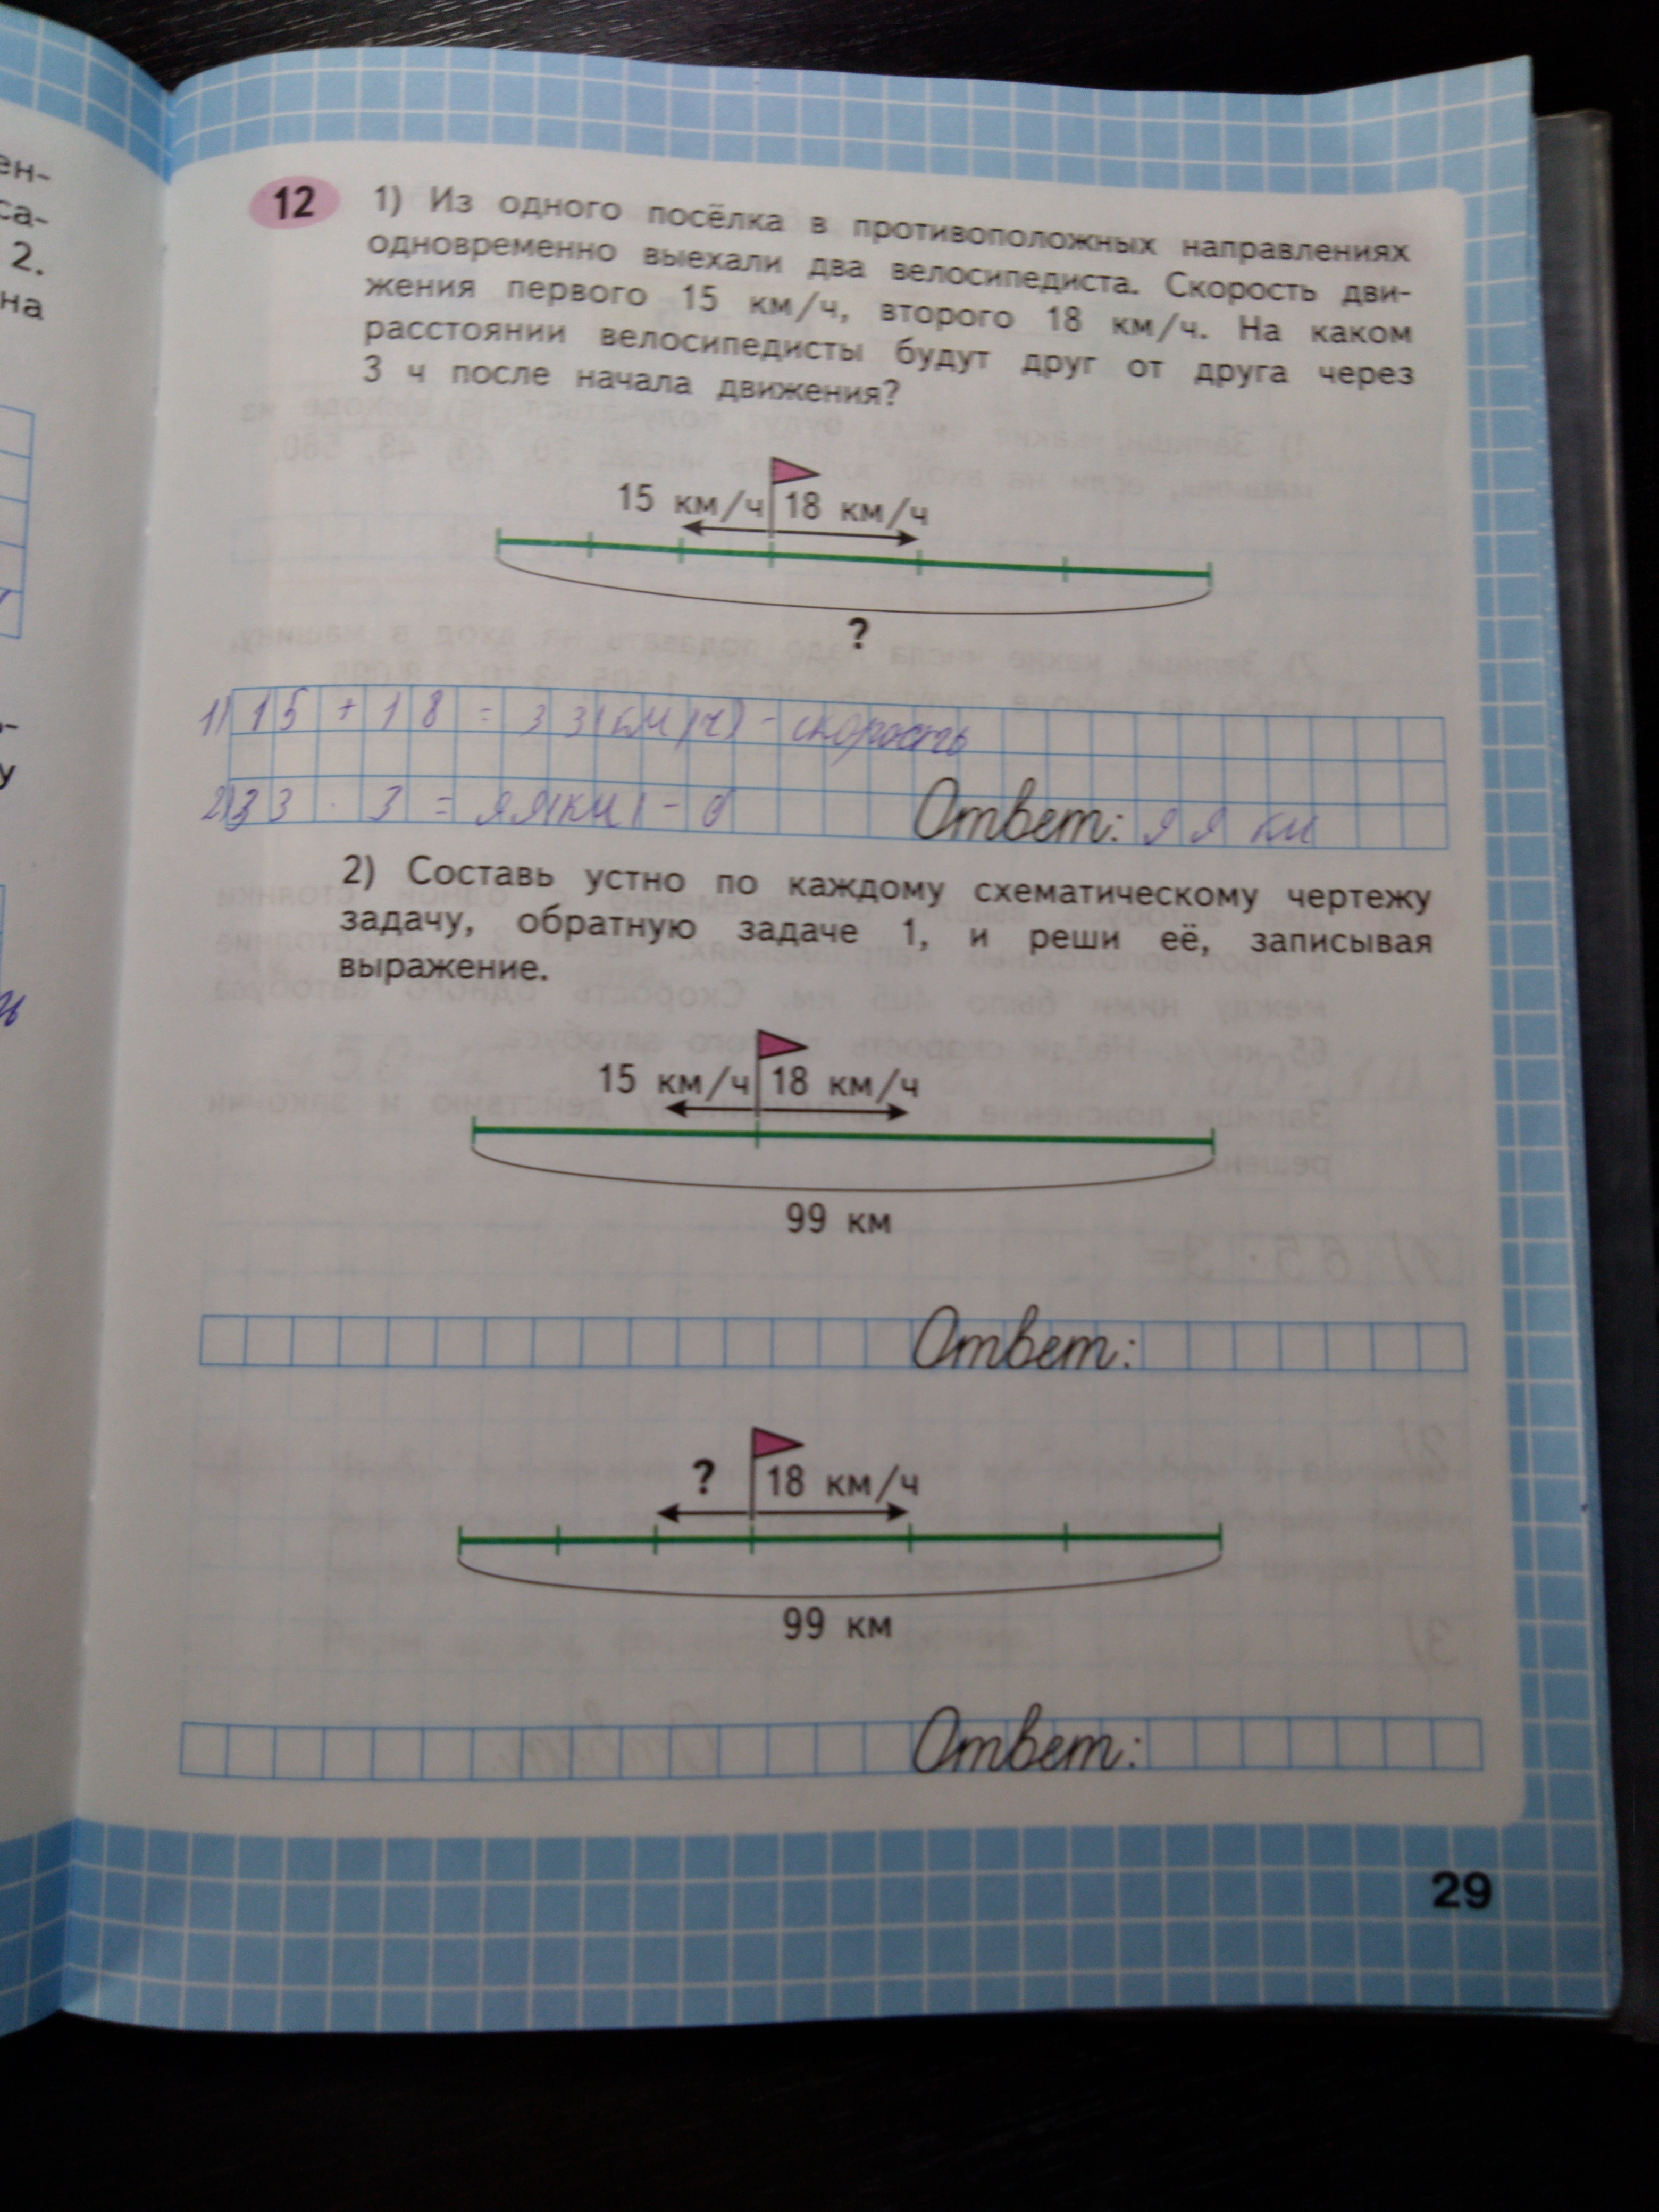 ен-
са-
2.
на
12 1) Из одного посёлка в противоположных направлениях
одновременно выехали два велосипедиста. Скорость дви-
жения первого 15 км/ч, второго 18 км/ч. На каком
расстоянии велосипедисты будут друг от друга через
3 ч после начала движения?
15 км/ч 18 км/ч
?
1) 15 + 18 = 33 (км/ч) - скорость
2) 33 · 3 = 99 (км) -
Ответ: 99 км
2) Составь устно по каждому схематическому чертежу
задачу, обратную задаче 1, и реши её, записывая
выражение.
15 км/ч 18 км/ч
99 км
Ответ:
? 18 км/ч
99 км
Ответ:
29